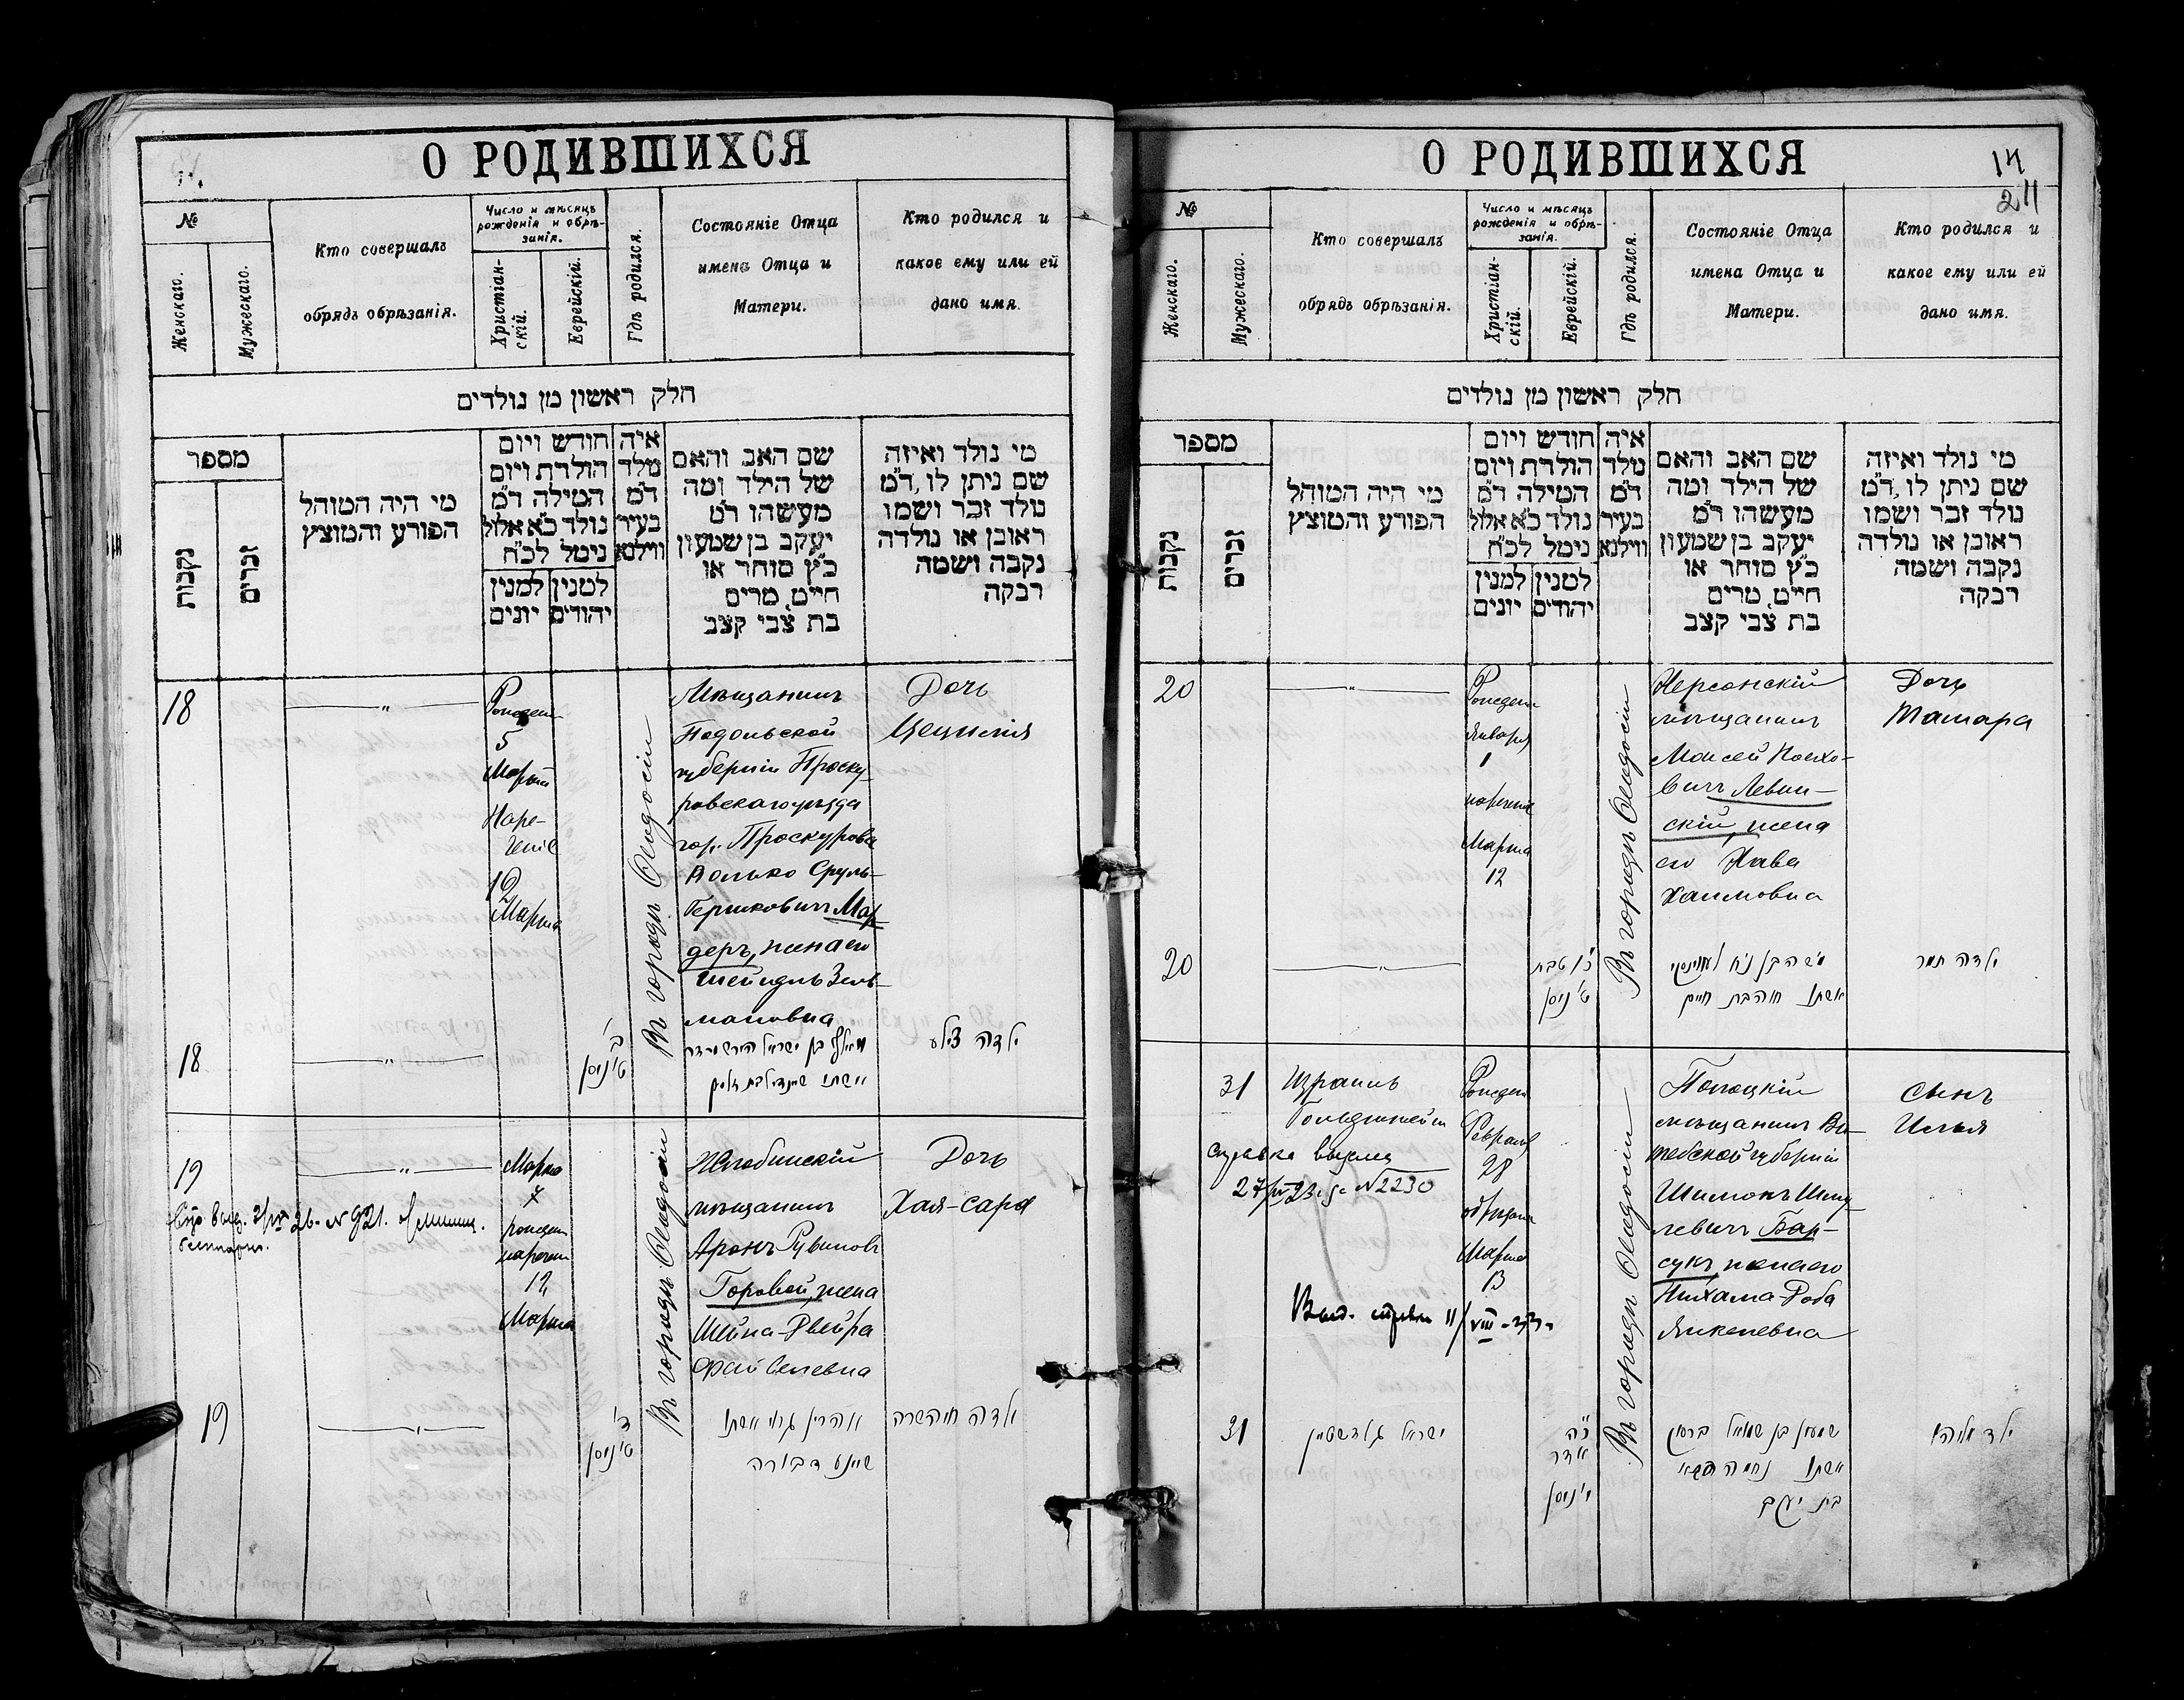 О РОДИВШИХСЯ
№
Женскаго.
Мужескаго.
Кто совершалъ
обрядъ обрѣзанія.
Число и мѣсяцъ
рожденія и обрѣ-
занія.
Христіан-
скій.
Еврейскій.
Гдѣ родился.
Состояніе Отца
имена Отца и
Матери.
Кто родился и
какое ему или ей
дано имя.
חלק ראשון מן נולדים
מספר
נקבות
זכרים
מי היה המוהל
הפורע והמוצץ
חודש ויום
הולדת ויום
המילה ד״מ
נולד כ״א אלול
נימל לכ״ח
למנין
יהודים
למנין
יונים
איה
נולד
ד״מ
בעיר
ווילנא
שם האב והאם
של הילד ומה
מעשהו ד״מ
יעקב בן שמעון
כ״ץ סוחר או
חייט, מרים
בת צבי קצב
מי נולד ואיזה
שם ניתן לו, ד״מ
נולד זכר ושמו
ראובן או נולדה
נקבה ושמה
רבקה
18
Рожден
5
Марта
Наре-
ченіе
12
Марта
Въ городѣ Ѳеодосіи
Мѣщанинъ
Подольской
губерніи Проску-
ровскаго уѣзда
гор. Проскурова
Волько Сруль-
Гершковичъ Мар-
деръ, жена его
Шейндль Зель-
мановна
Дочь
Цецилія
18
ב׳
ט׳ ניסן
ילדה
19
Марта
рожден
нареченіе
12
Марта
Въ городѣ Ѳеодосіи
Жлобинскій
мѣщанинъ
Аронъ Рувиновъ
Горовой, жена
Шейна-Двейра
Файвелевна
Дочь
Хая-Сара
№ 921.
19
ט׳ ניסן
שיינע דבורה
ילדה חיה שרה
О РОДИВШИХСЯ
14
211
№
Женскаго.
Мужескаго.
Кто совершалъ
обрядъ обрѣзанія.
Число и мѣсяцъ
рожденія и обрѣ-
занія.
Христіан-
скій.
Еврейскій.
Гдѣ родился.
Состояніе Отца
имена Отца и
Матери.
Кто родился и
какое ему или ей
дано имя.
חלק ראשון מן נולדים
מספר
נקבות
זכרים
מי היה המוהל
הפורע והמוצץ
חודש ויום
הולדת ויום
המילה ד״מ
נולד כ״א אלול
נימל לכ״ח
למנין
יהודים
למנין
יונים
איה
נולד
ד״מ
בעיר
ווילנא
שם האב והאם
של הילד ומה
מעשהו ד״מ
יעקב בן שמעון
כ״ץ סוחר או
חייט, מרים
בת צבי קצב
מי נולד ואיזה
שם ניתן לו, ד״מ
נולד זכר ושמו
ראובן או נולדה
נקבה ושמה
רבקה
20
Рожден
Января
1
нареченіе
Марта
12
Въ городѣ Ѳеодосіи
Херсонскій
мѣщанинъ
Моисей Ноехо-
вичъ Левин-
скій, жена
его Хава
Хаимовна
Дочь
Тамара
20
טבת
ט׳ ניסן
משה בן נח לעווינסקי
אשתו חוה בת חיים
ילדה תמר
31
Израиль
Гольдштейнъ
справка выдана
27/IV 23 г. № 2230
Выд. справка 11/VIII - 23 г.
Рожден
Февраля
28
обрѣзанъ
Марта
13
Въ городѣ Ѳеодосіи
Полоцкій
мѣщанинъ Ви-
тебской губерніи
Шимонъ Шму-
левичъ Бар-
сукъ, жена его
Нихама-Доба
Янкелевна
Сынъ
Илья
31
ישראל גולדשטיין
כ״ה
אדר
י׳ ניסן
שמעון בן שמואל ברסוק
אשתו נחמה
בת יעקב
ילד אליהו